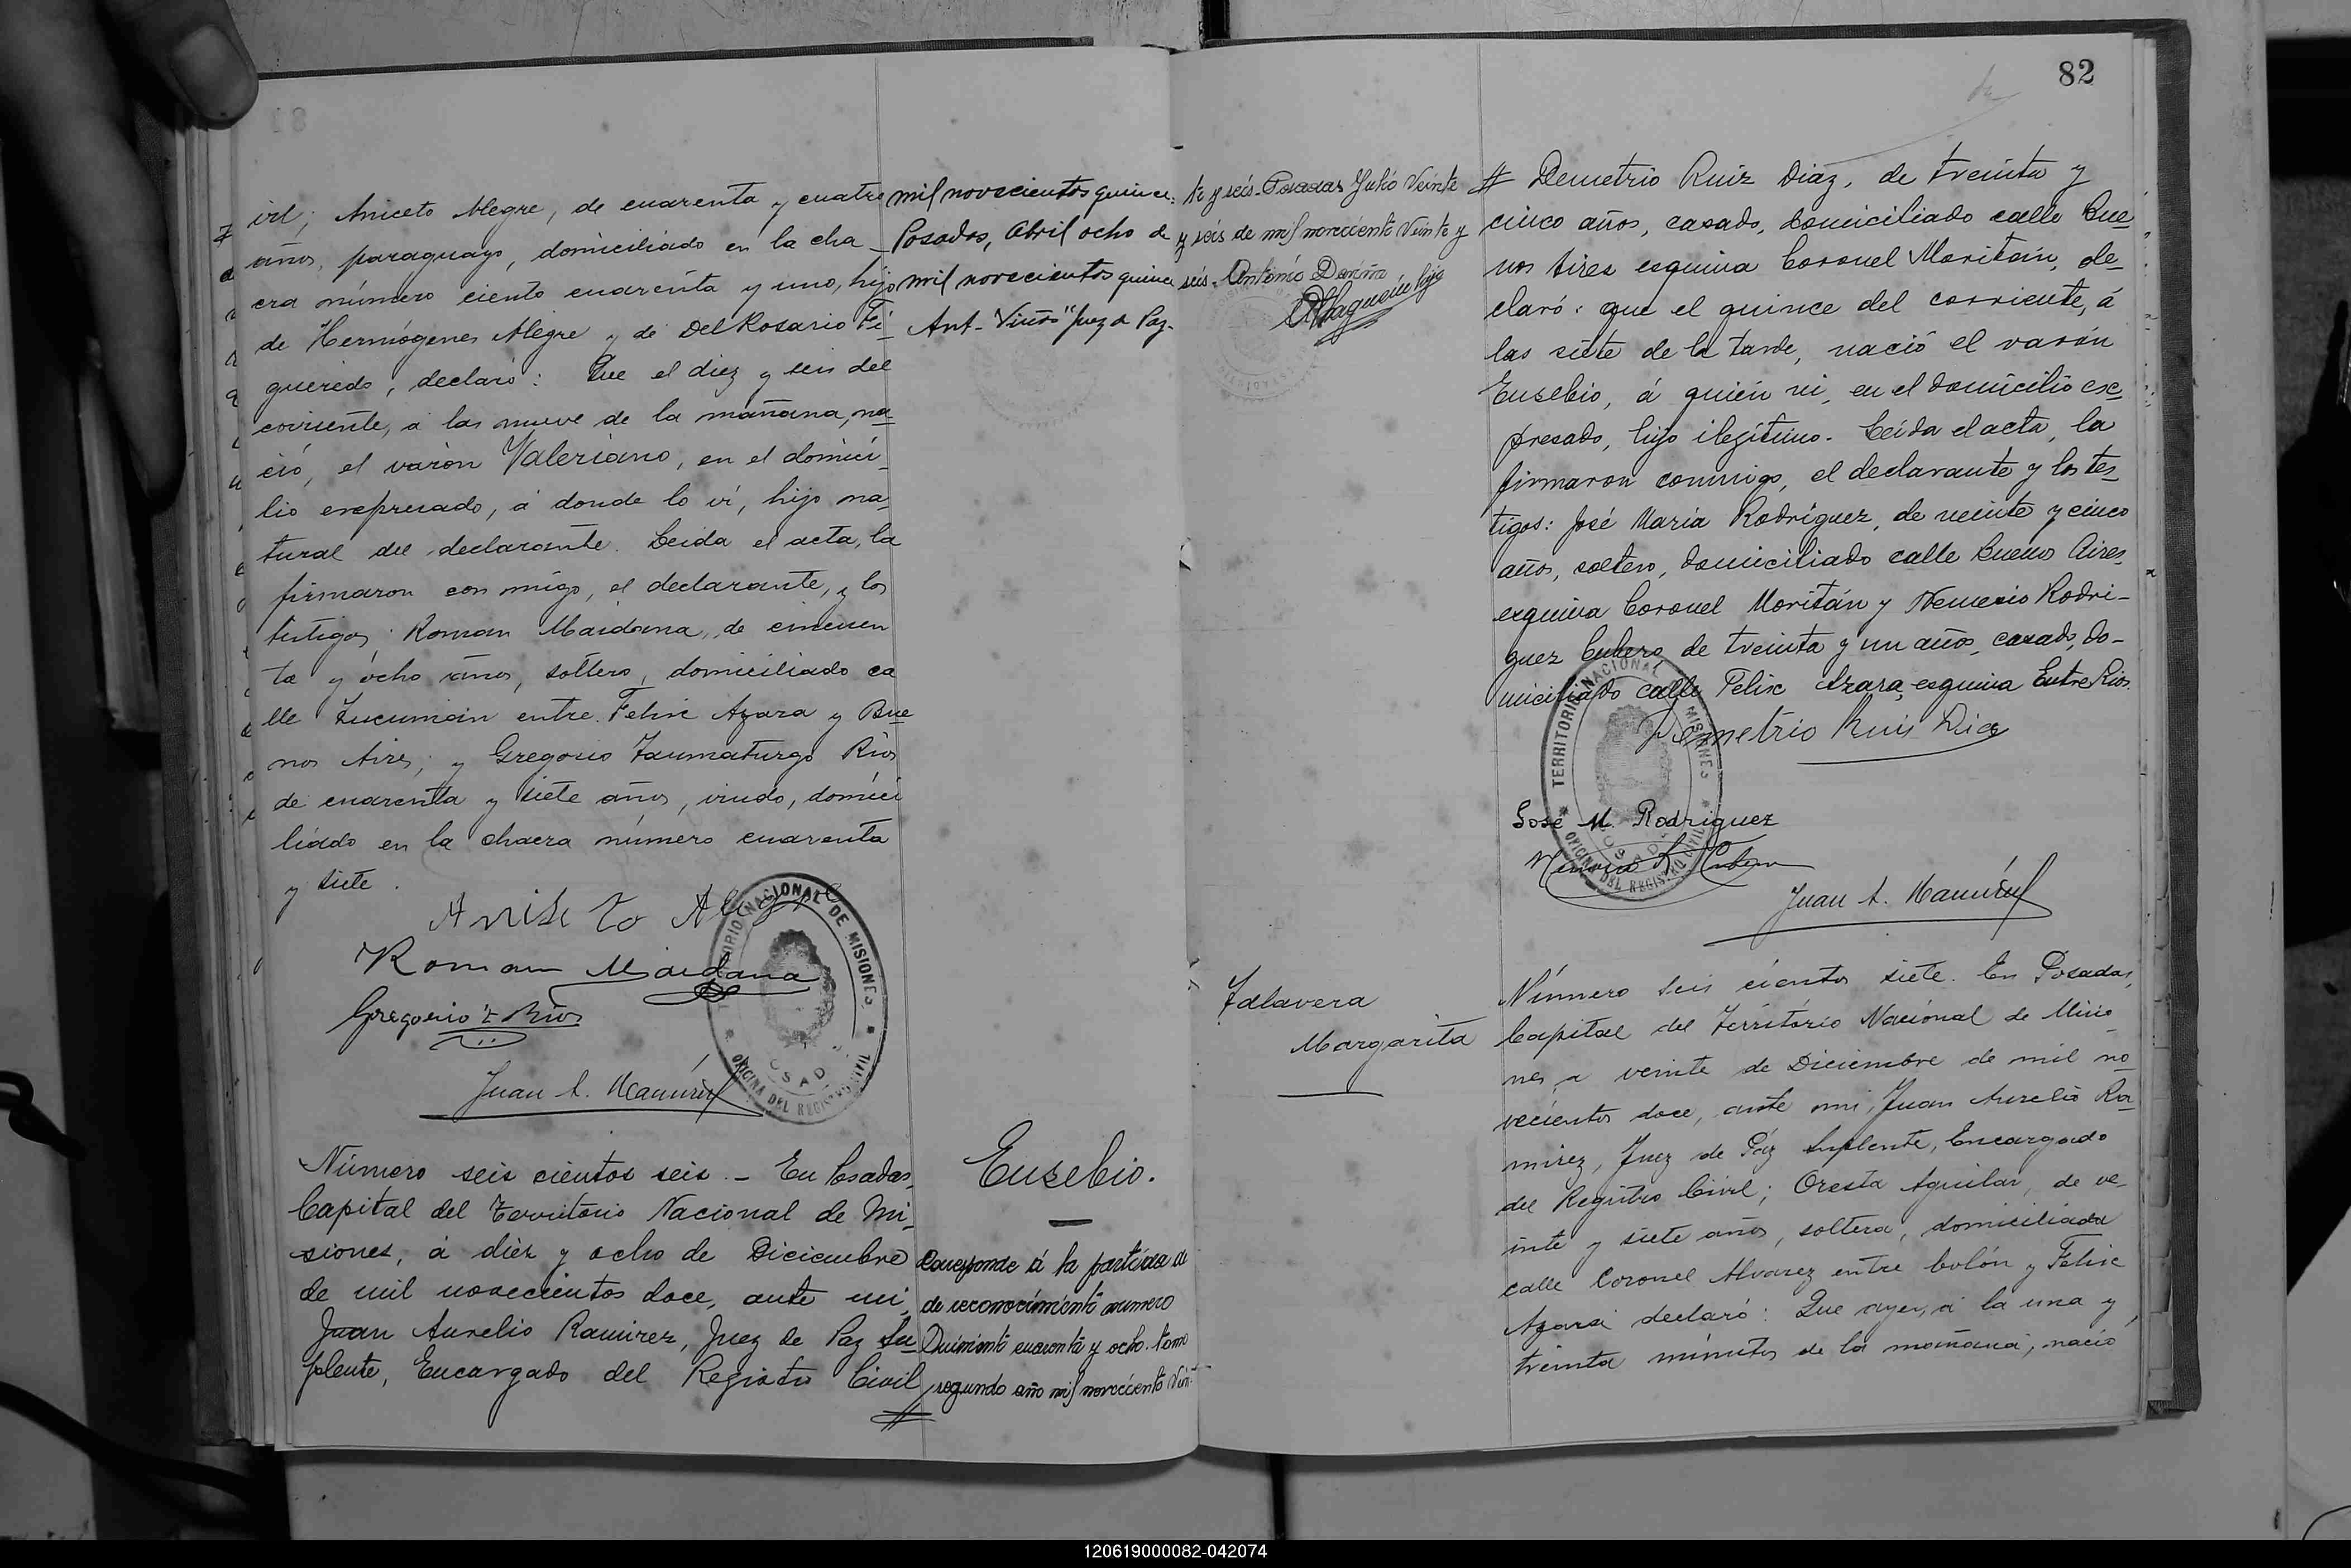 82
vil; Aniceto Alegre, de cuarenta y cuatro
años, paraguayo, domiciliado en la cha_
cra número ciento cuarenta y uno, hijo
de Hermógenes Alegre y de Del Rosario Fi_
gueredo, declaró: Que el diez y seis del
corriente, a las nueve de la mañana, na_
ció, el varón Valeriano, en el domici_
lio expresado, á donde lo ví, hijo na_
tural del declarante. Leida el acta, la
firmaron con migo, el declarante, y los
testigos; Roman Maidana, de cincuen
ta y ocho años, soltero, domiciliado ca
lle Tucumán entre Felix Azara y Bue
nos Aires; y Gregorio Taumaturgo Rios
de cuarenta y siete años, viudo, domici
liado en la chacra número cuarenta
y siete.
Aniseto Alegre
Roman Maidana
Gregorio T Rios
Juan A. Ramírez
TERRITORIO NACIONAL DE MISIONES
OFICINA DEL REGISTRO CIVIL
POSADAS
mil novecientos quince.
Posadas, Abril ocho de
mil novecientos quince
Ant. Viños Juez de Paz.
Número seis cientos seis. - En Posadas,
Capital del Territorio Nacional de Mi_
siones, á diez y ocho de Diciembre
de mil novecientos doce, ante mi,
Juan Aurelio Ramirez, Juez de Paz Su_
plente, Encargado del Registro Civil
Eusebio.
Corresponde á la partida de
de reconocimiento numero
Quiniento cuarenta y ocho tomo
segundo año mil noveciento Vein
te y seis - Posadas Julio Veinte
y seis de mil noveciento Veinte y
seis - Antonio
# Demetrio Ruiz Diaz, de treinta y
cinco años, casado, domiciliado calle Bue_
nos Aires esquina Coronel Moritán, de_
claró: que el quince del corriente, á
las siete de la tarde, nació el varón
Eusebio, á quién vi, en el domicilio ex_
presado, hijo ilegítimo. Leída el acta, la
firmaron conmigo, el declarante y los tes_
tigos: José María Rodríguez, de veinte y cinco
años, soltero, domiciliado calle Buenos Aires
esquina Coronel Moritán y Nemesio Rodri-
guez Cubero, de treinta y un años, casado, do-
miciliado calle Felix Azara esquina Entre Rios.
Demetrio Ruis Diaz
José M. Rodriguez
Juan A. Ramírez
TERRITORIO NACIONAL DE MISIONES
OFICINA DEL REGISTRO CIVIL
POSADAS
Talavera
Margarita
Número seis cientos siete. En Posadas,
Capital del Território Nacional de Misio_
nes, a veinte de Diciembre de mil no_
vecientos doce, ante mi, Juan Aurelio Ra_
mirez, Juez de Páz Suplente, Encargado
del Registro Civil; Oresta Aguilar, de ve_
inte y siete años, soltera, domiciliada
calle Coronel Alvarez entre Colón y Felix
Azara declaró: Que ayer, á la una y
treinta minutos de la mañana, nació
120619000082-042074